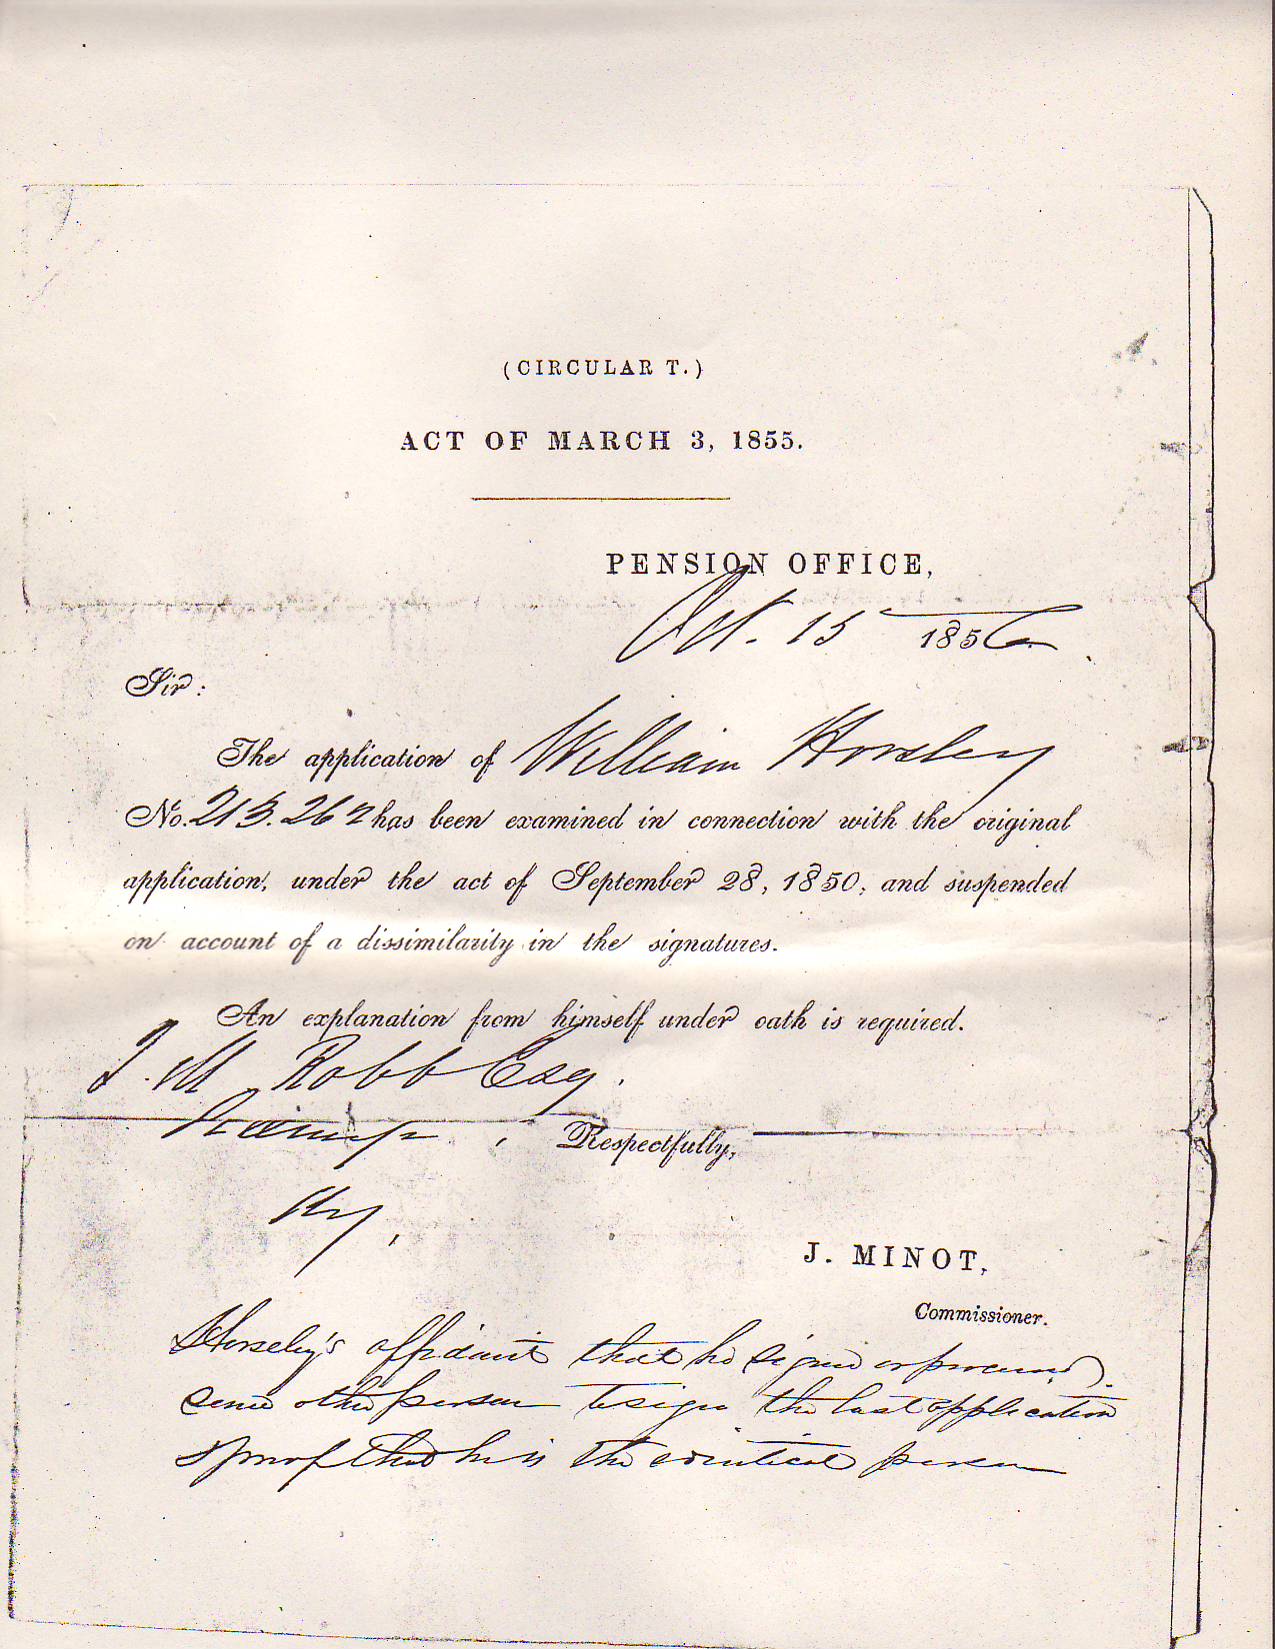 (CIRCULAR T.)
ACT OF MARCH 3, 1855.
PENSION OFFICE,
Oct. 15 1856
Sir:
The application of William Horsley
No. 213.262 has been examined in connection with the original
application, under the act of September 28, 1850, and suspended
on account of a dissimilarity in the signatures.
An explanation from himself under oath is required.
J. M Robb Esq.
Respectfully,
Ky,
J. MINOT,
Commissioner.
Horseley's affidavit that he signed or procured
some other person to sign the last application
& proof that he is the identical person